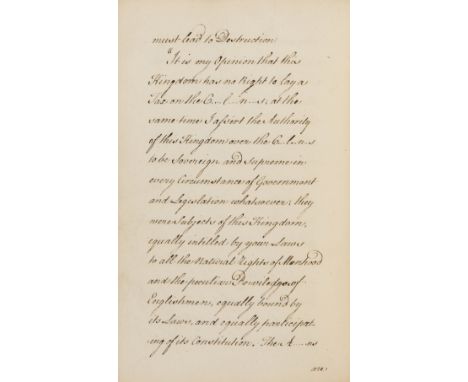 must lead to Destruction
"It is my Opinion that this
Kingdom has no Right to lay a
Tax on the C...l...n...s, at the
same time I assert the Authority
of this Kingdom over the C..l..n.s
to be Sovereign and supreme in
every Circumstance of Government
and Legislation whatsoever; they
were Subjects of this Kingdom,
equally intitled by your Laws
to all the Natural Rights of Mankind
and the peculiar Priviledges of
Englishmen, equally bound by
its Laws, and equally participat-
ing of its Constitution. The A....ns
are